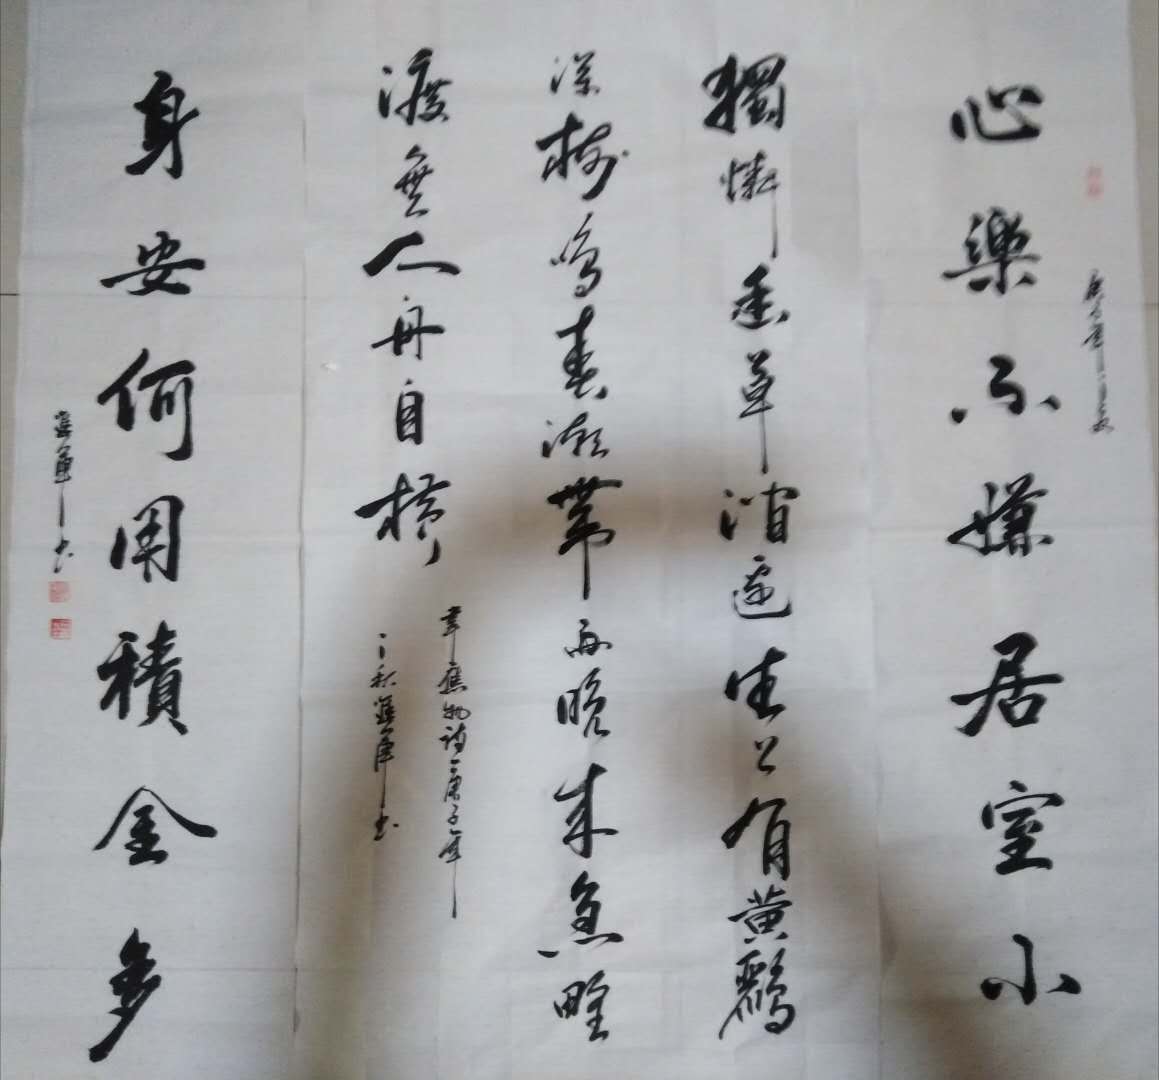 庚子年
心樂不嫌居室小
獨憐幽草澗邊生上有黃鸝
深樹鳴春潮帶雨晚來急野
渡無人舟自橫
韋應物詩庚子年
之秋書
身安何用積金多
軍书